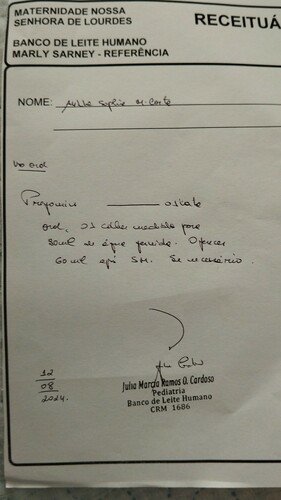 MATERNIDADE NOSSA
SENHORA DE LOURDES
RECEITUÁ
BANCO DE LEITE HUMANO
MARLY SARNEY - REFERÊNCIA
NOME: Sophia
Via oral
01 lata
01 colher medida para
30ml de água fervida. Oferecer
60ml após SM. Se necessário.
12
08
2024.
Julia Marcia Ramos O. Cardoso
Pediatria
Banco de Leite Humano
CRM 1686